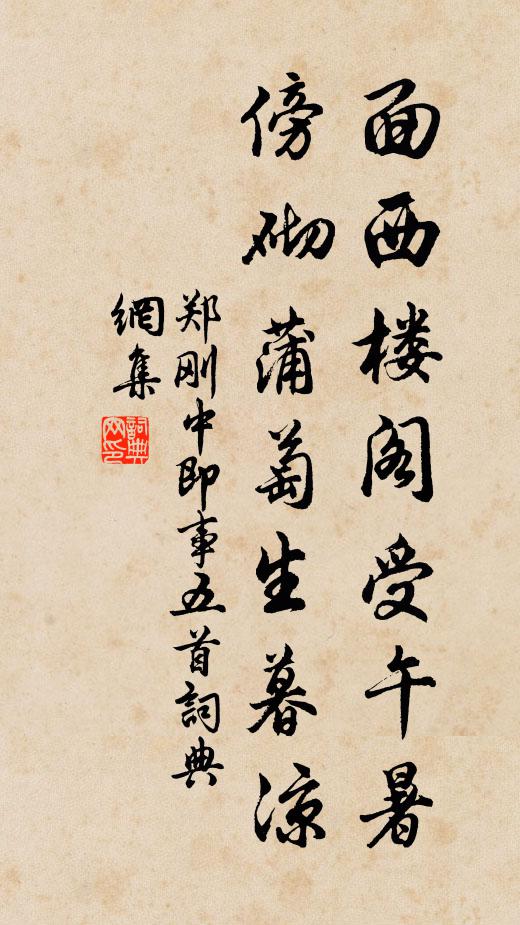 面西楼阁受午暑
傍砌蒲萄生暮凉
郑刚中即事五首詞典
網集
詞典
网印